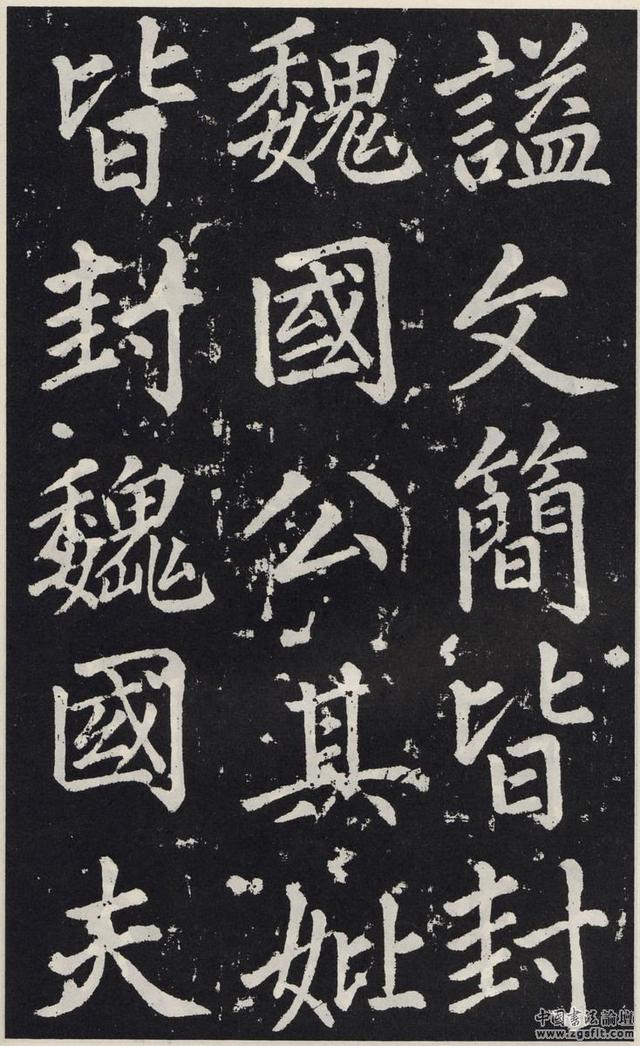 謚文簡皆封
魏國公其妣
皆封魏國夫
中国书法論壇
www.zgsflt.com